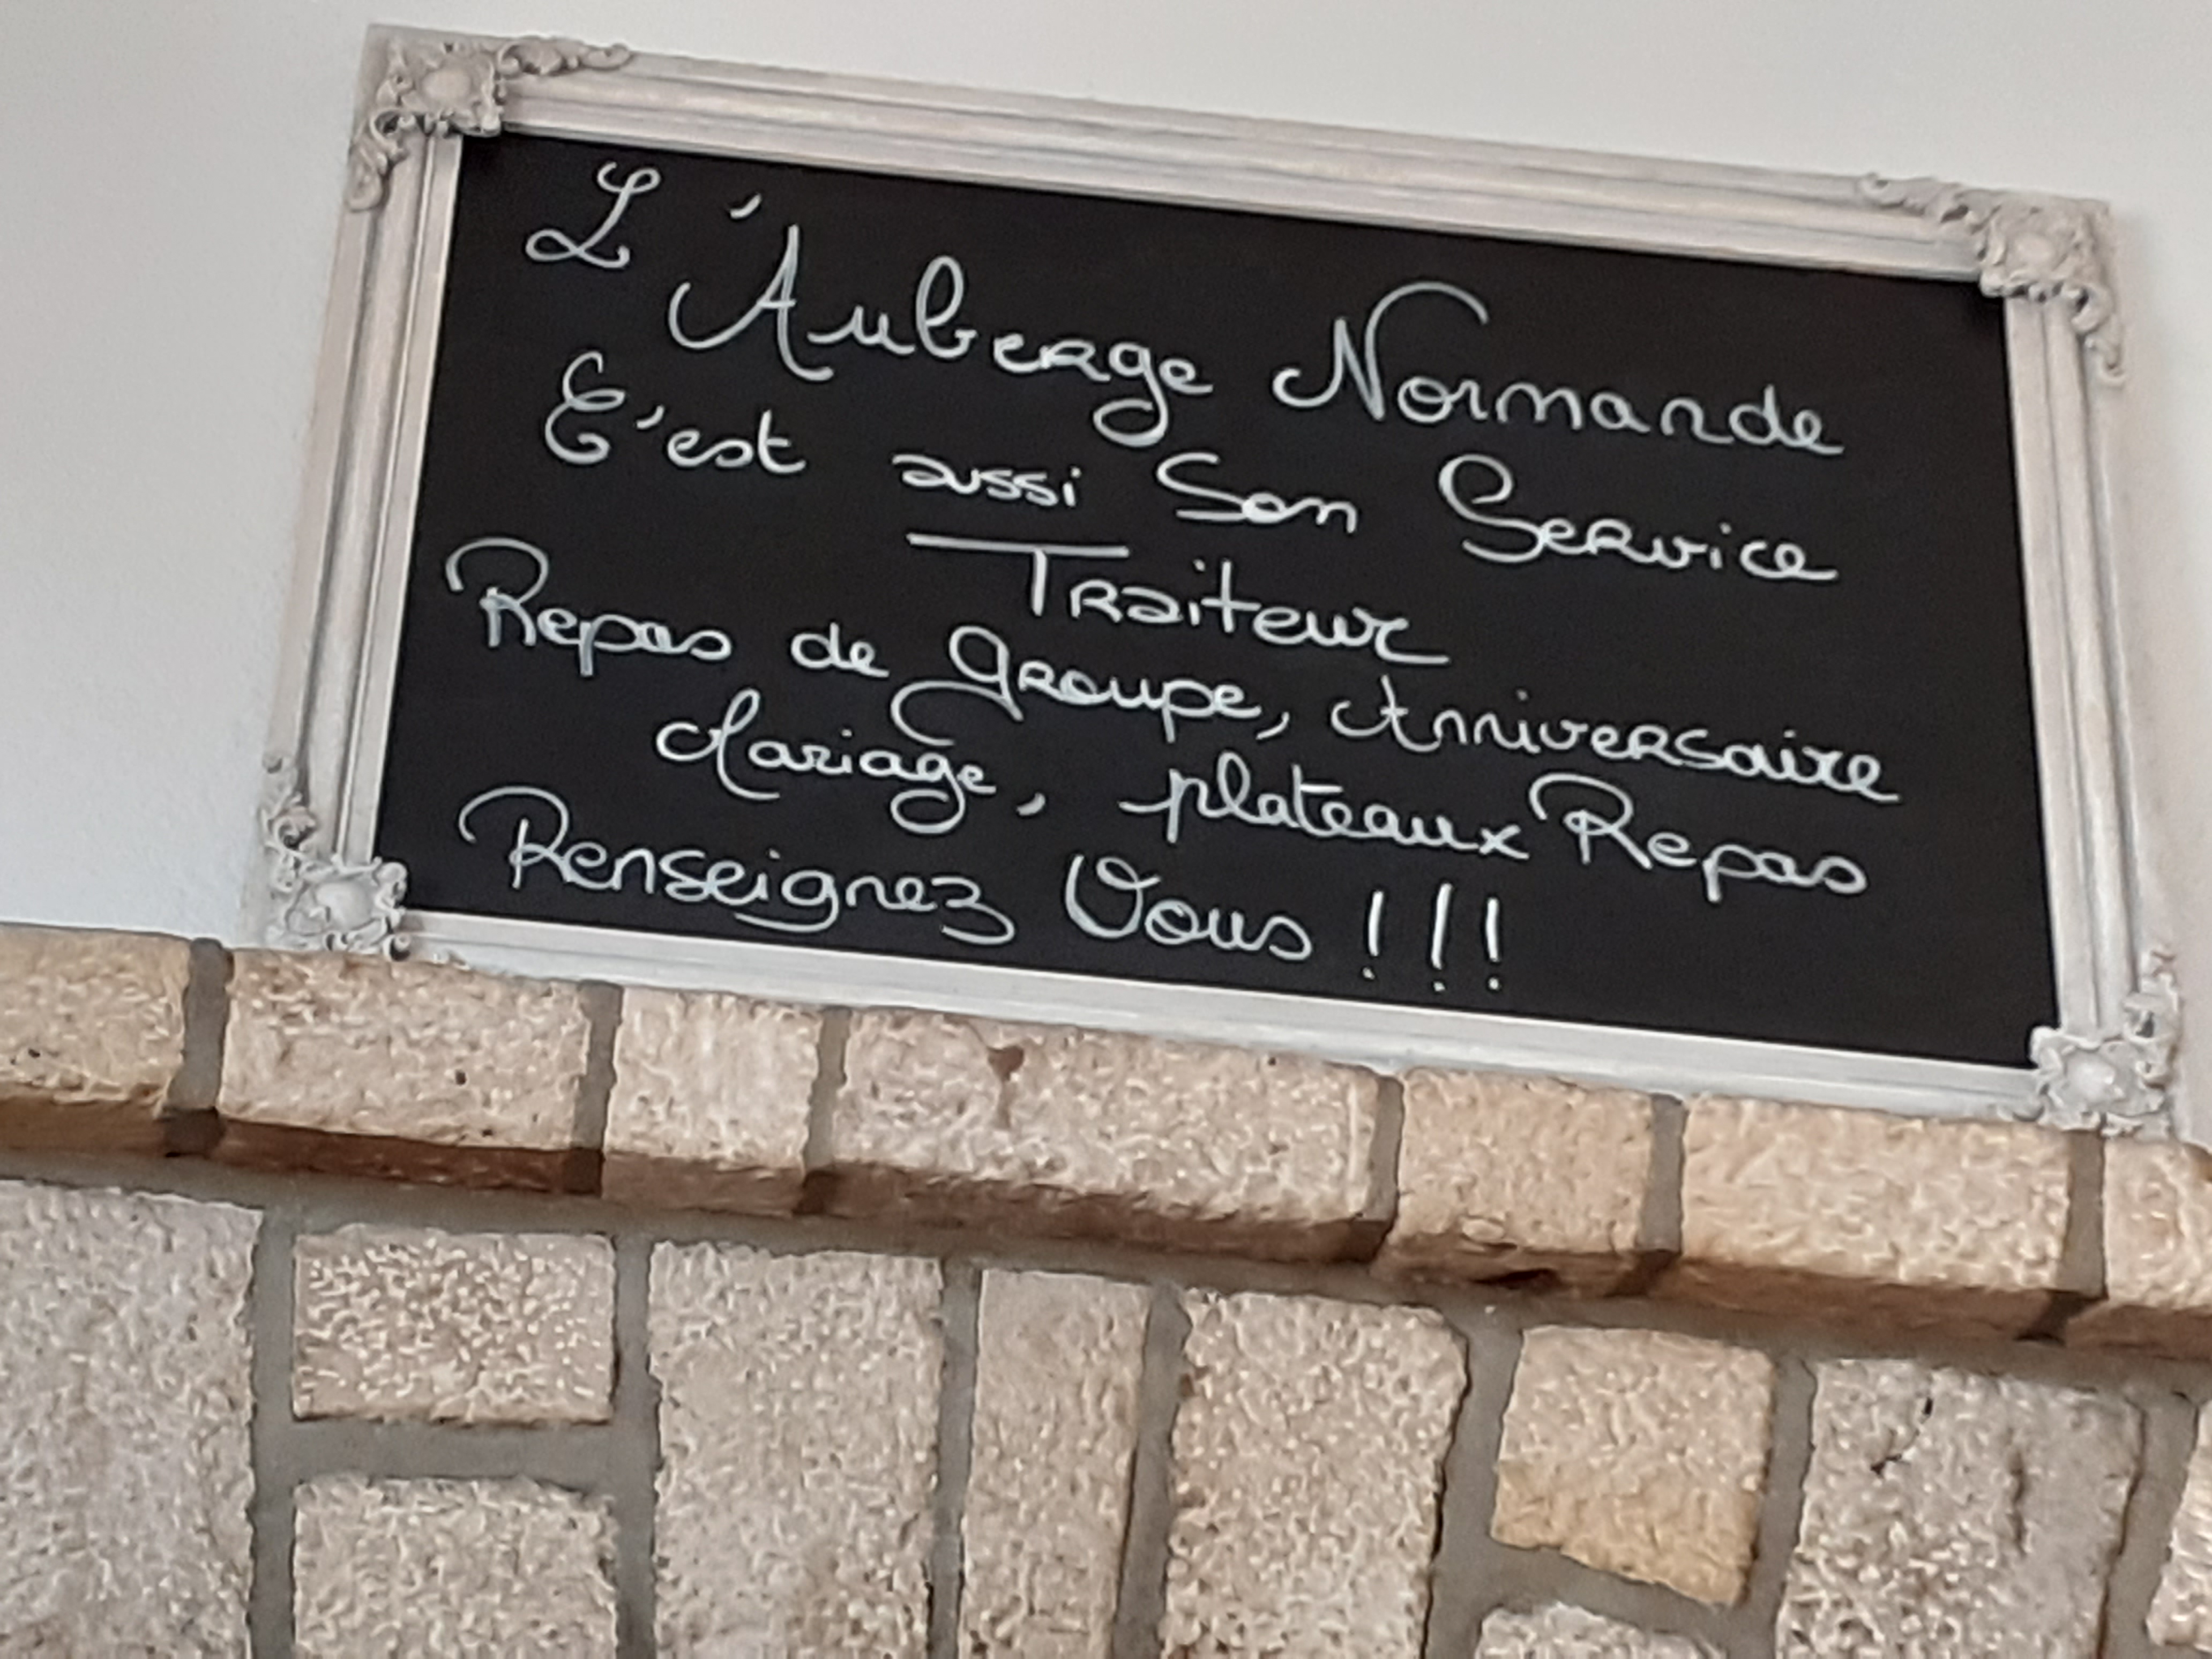 L'Auberge Normande
C'est aussi Son Service
Traiteur
Repas de Groupe, Anniversaire
Mariage, plateaux Repas
Renseignez Vous !!!